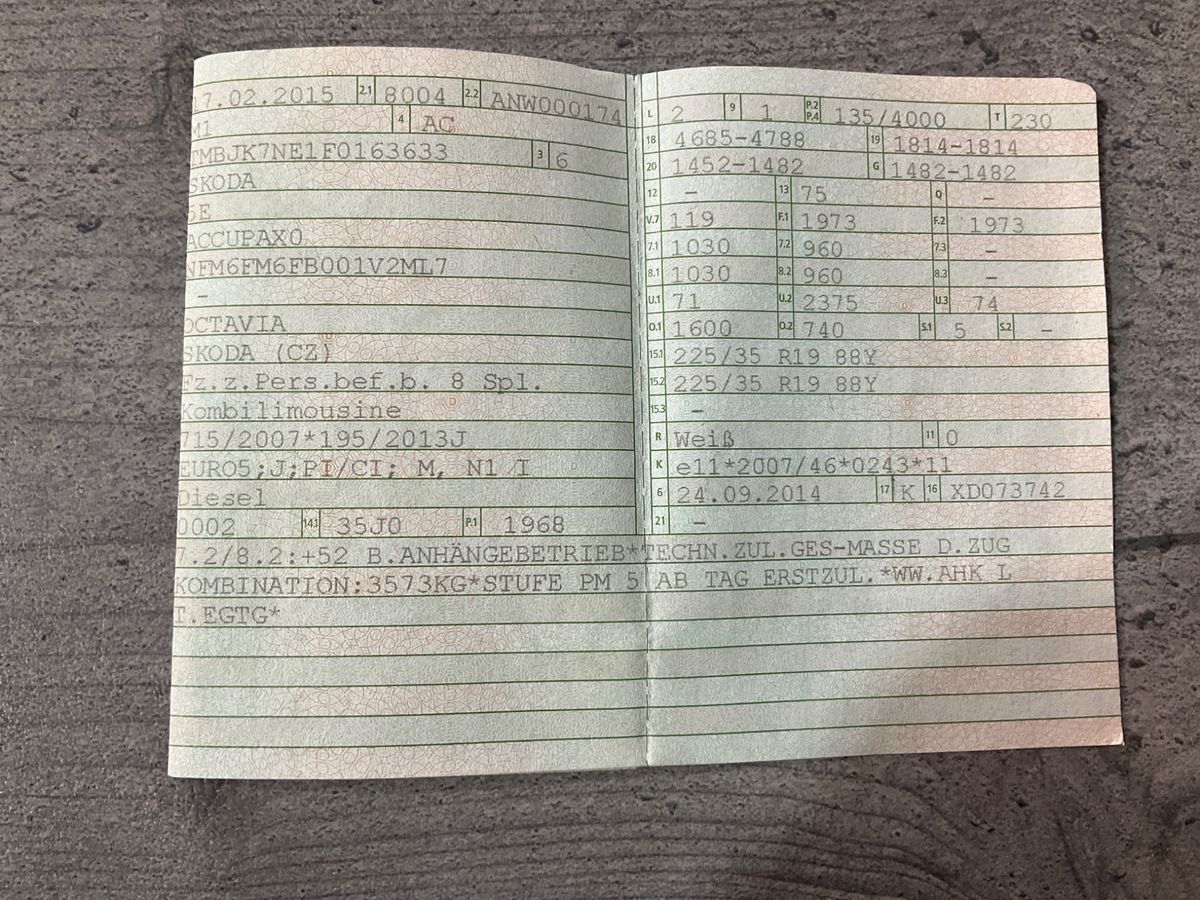 7.02.2015 2.1 8004 2.2 ANW000174
M1 4 AC
TMBJK7NE1F0163633 3 6
SKODA
5E
ACCUPAX0
NFM6FM6FB001V2ML7
-
OCTAVIA
SKODA (CZ)
Fz.z.Pers.bef.b. 8 Spl.
Kombilimousine
715/2007*195/2013J
EURO5;J;PI/CI; M, N1 I
Diesel
0002 14.1 35J0 P.1 1968
L 2 9 1 P.2 P.4 135/4000 T 230
18 4685-4788 19 1814-1814
20 1452-1482 G 1482-1482
12 - 13 75 Q -
V.7 119 F.1 1973 F.2 1973
7.1 1030 7.2 960 7.3 -
8.1 1030 8.2 960 8.3 -
U.1 71 U.2 2375 U.3 74
O.1 1600 O.2 740 S.1 5 S.2 -
15.1 225/35 R19 88Y
15.2 225/35 R19 88Y
15.3 -
R Weiß 11 0
K e11*2007/46*0243*11
6 24.09.2014 17 K 16 XD073742
21 -
7.2/8.2:+52 B.ANHÄNGEBETRIEB*TECHN.ZUL.GES-MASSE D.ZUG
KOMBINATION:3573KG*STUFE PM 5 AB TAG ERSTZUL.*WW.AHK L
T.EGTG*